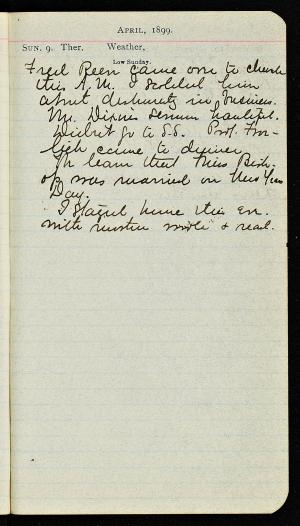 April, 1899.
Sun. 9. Ther. Weather,
Low Sunday.
Fred Reen came over to church
this A.M. I scolded him
about dishonesty in business.
Mr. Dixies sermon beautiful.
Didn't go to S.S. Prof. Fro-
lich came to dinner.
We learn that Miss Bish-
op was married on New Years
Day.
I stayed home this ev.
with & read.